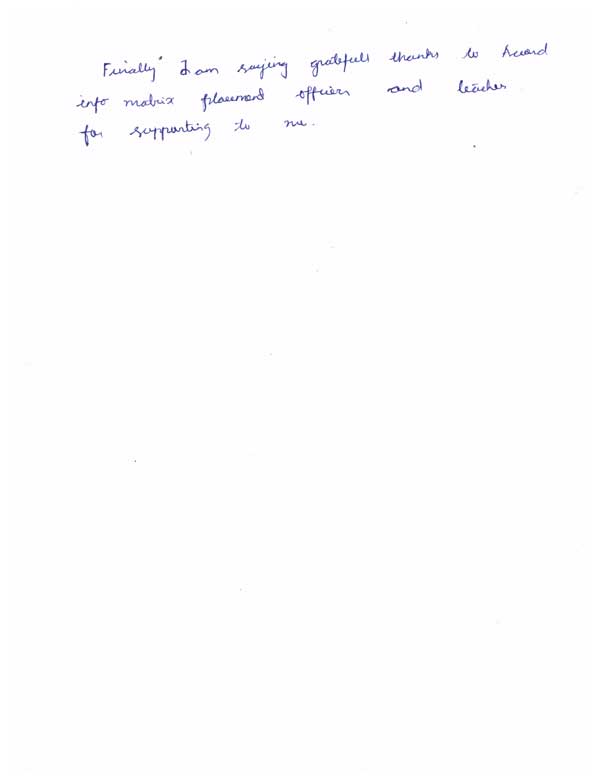 Finally" I am saying gratefull thanks to
info matrix placement officers and teacher
for supporting to me.